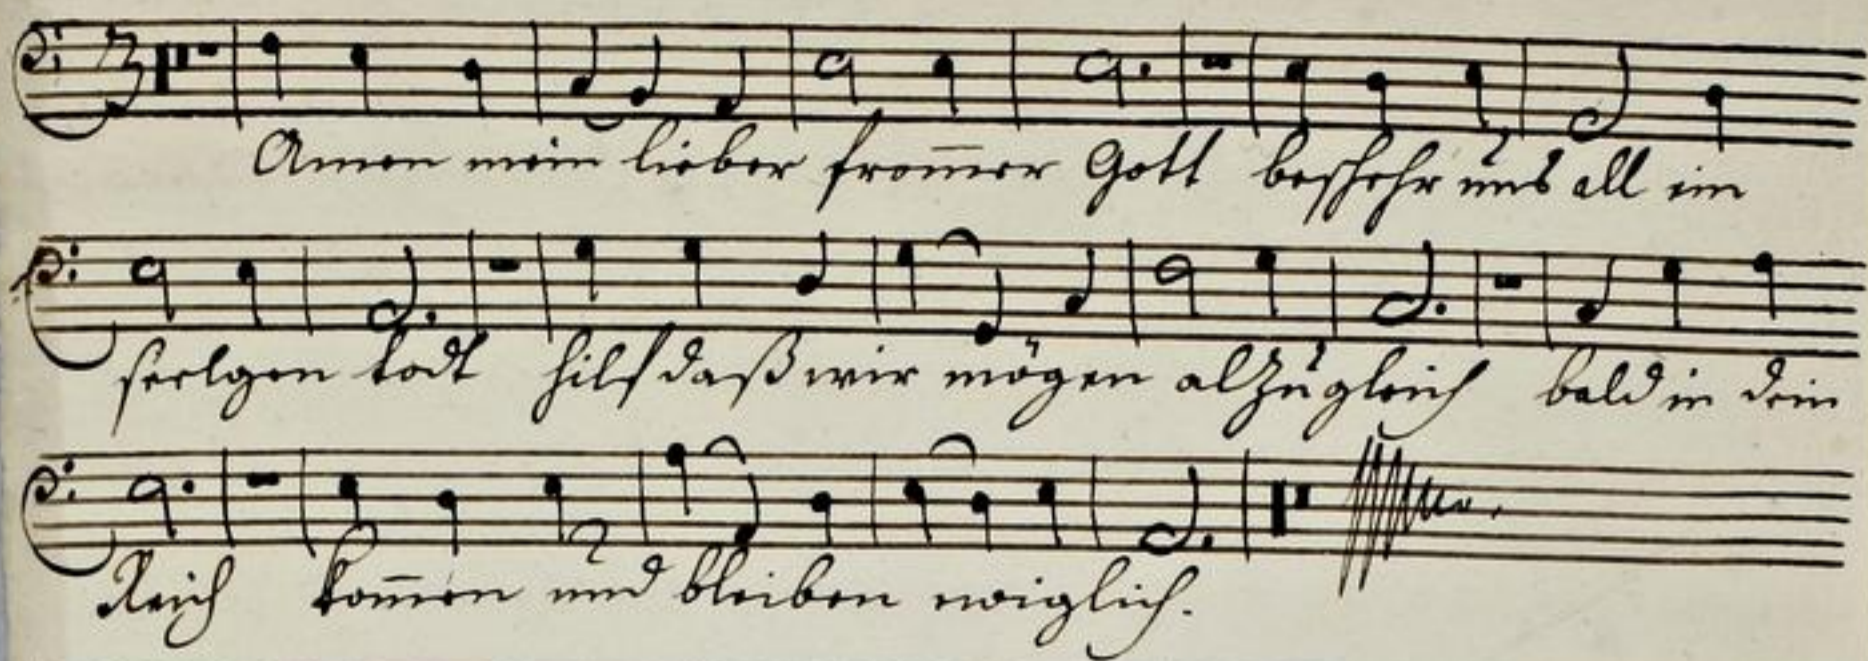 Amen mein lieber from̄er Gott beschehr uns all ein
seelgen todt hilf daß wir mögen alzugleich bald in dein
Reich kom̄en und bleiben ewiglich.